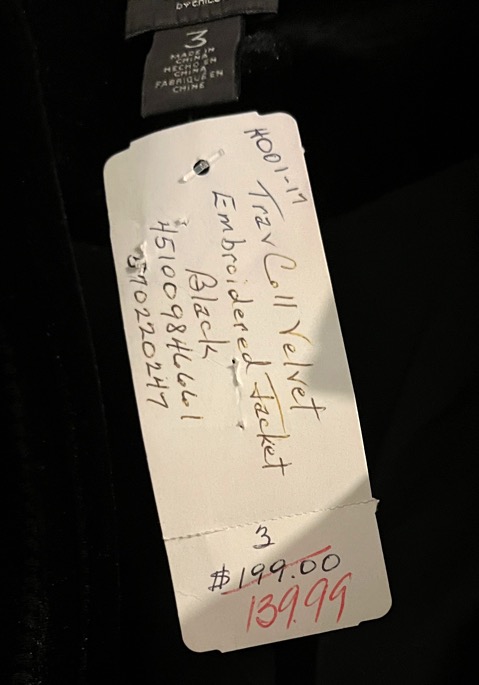 by chico
3
MADE IN
CHINA
HECHO EN
CHINA
FABRIQUÉ EN
CHINE
HOD1-17
Trav Coll Velvet
Embroidered Jacket
Black
451009846661
570220247
3
$199.00
139.99